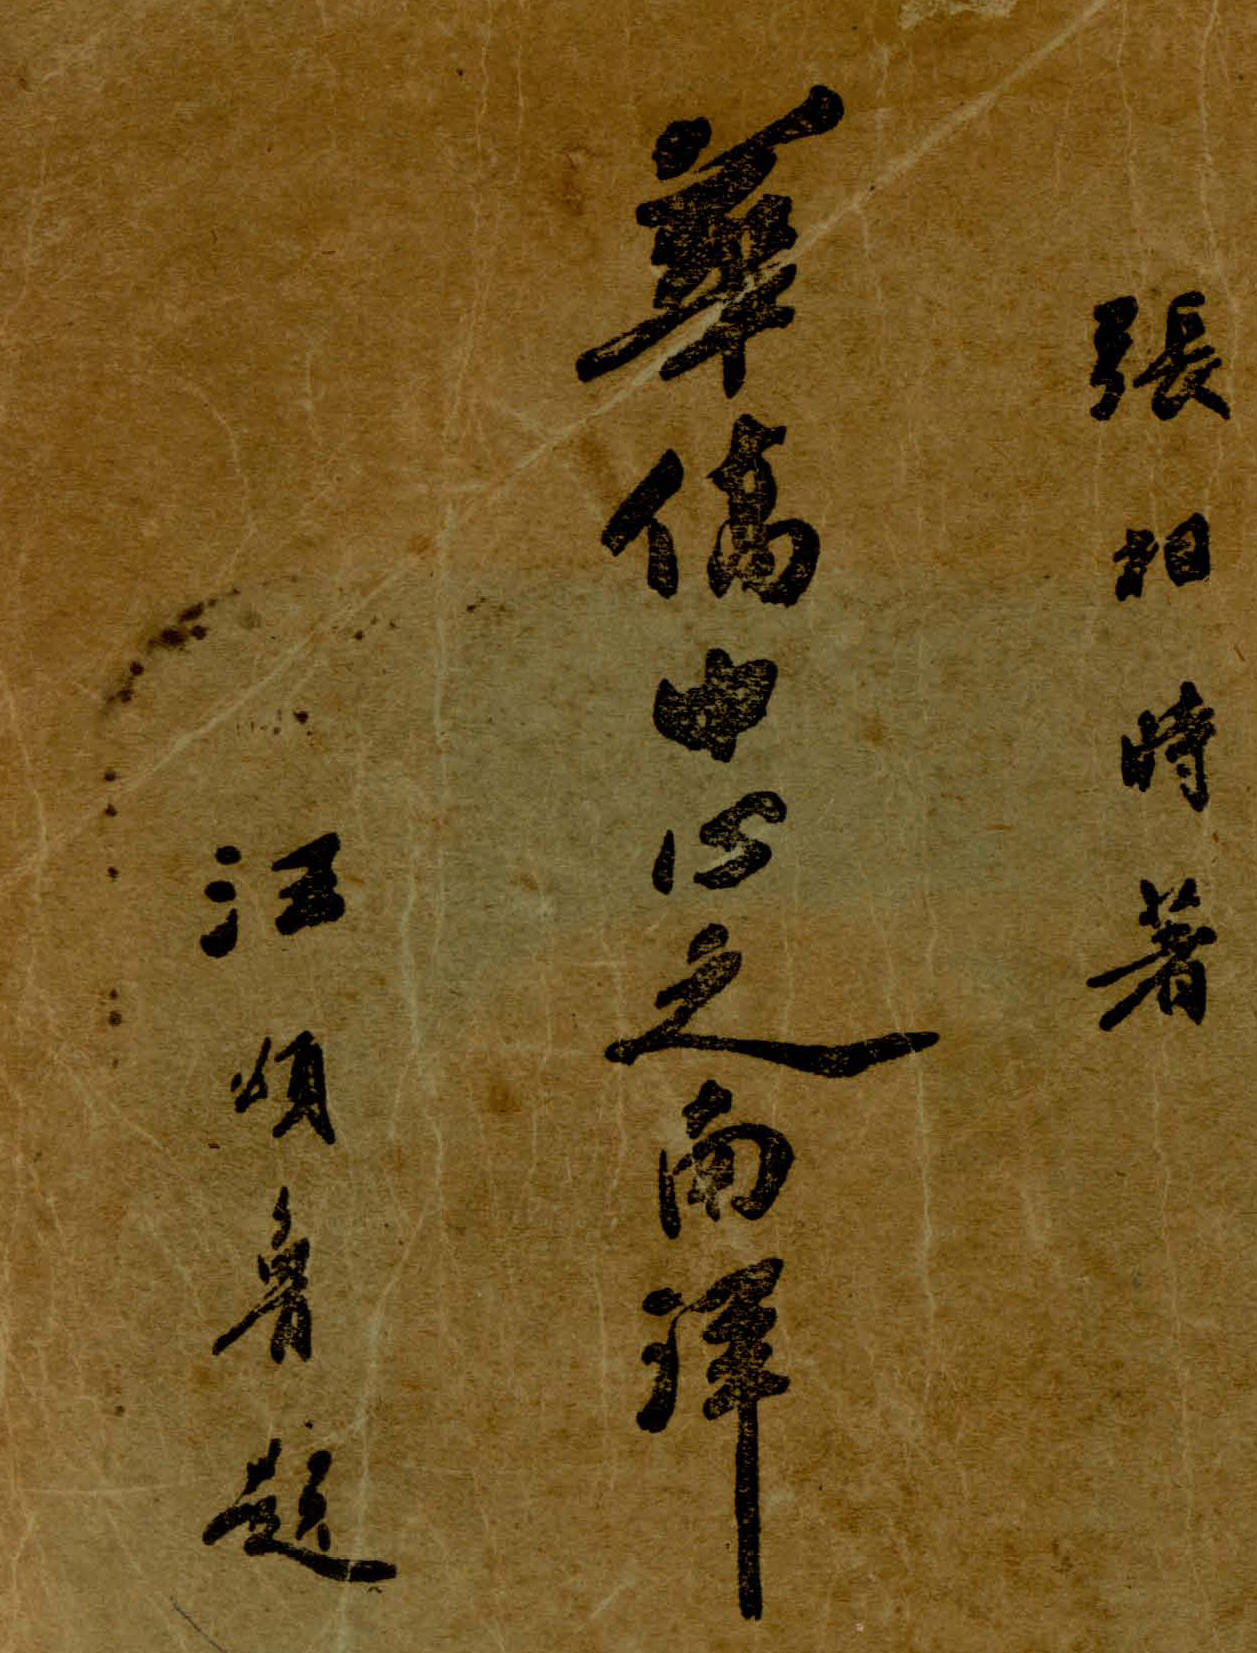 張相時著
華僑中心之南洋
汪頌魯題